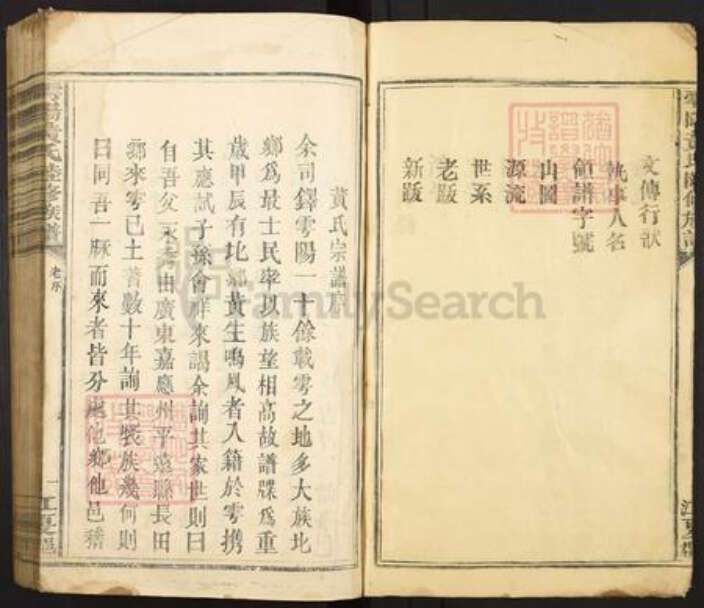 文傳行狀
執事人名
領譜字號
山圖
源流
世系
老跋
新跋
江夏郡
黃氏宗譜序
余司鐸雩陽一十餘載雩之地多大族北
鄉為最士民率以族望相高故譜牒為重
歲甲辰有北鄉黃生鳴鳳者入籍於雩携
其應試子孫會祥來謁余詢其家世則曰
自吾父來考由廣東嘉應州平遠縣長田
鄉來雩已土著數十年詢其衆族幾何則
曰同吾一脉而來者皆分處他鄉他邑
黃氏 修族譜
老序
一
江夏郡
FamilySearch